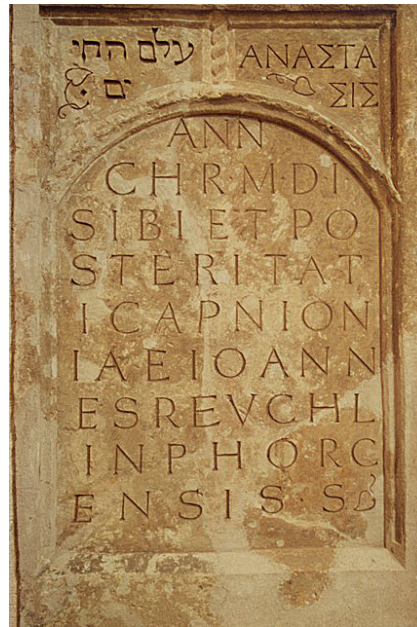 עלם החי
ים
ΑΝΑΣΤΑ
ΣΙΣ
ANN
CHR·M·DI
SIBI ET PO
STERITAT
I CAPNION
IA·E IOANN
ES REVCHL
IN PHORC
ENSIS·S